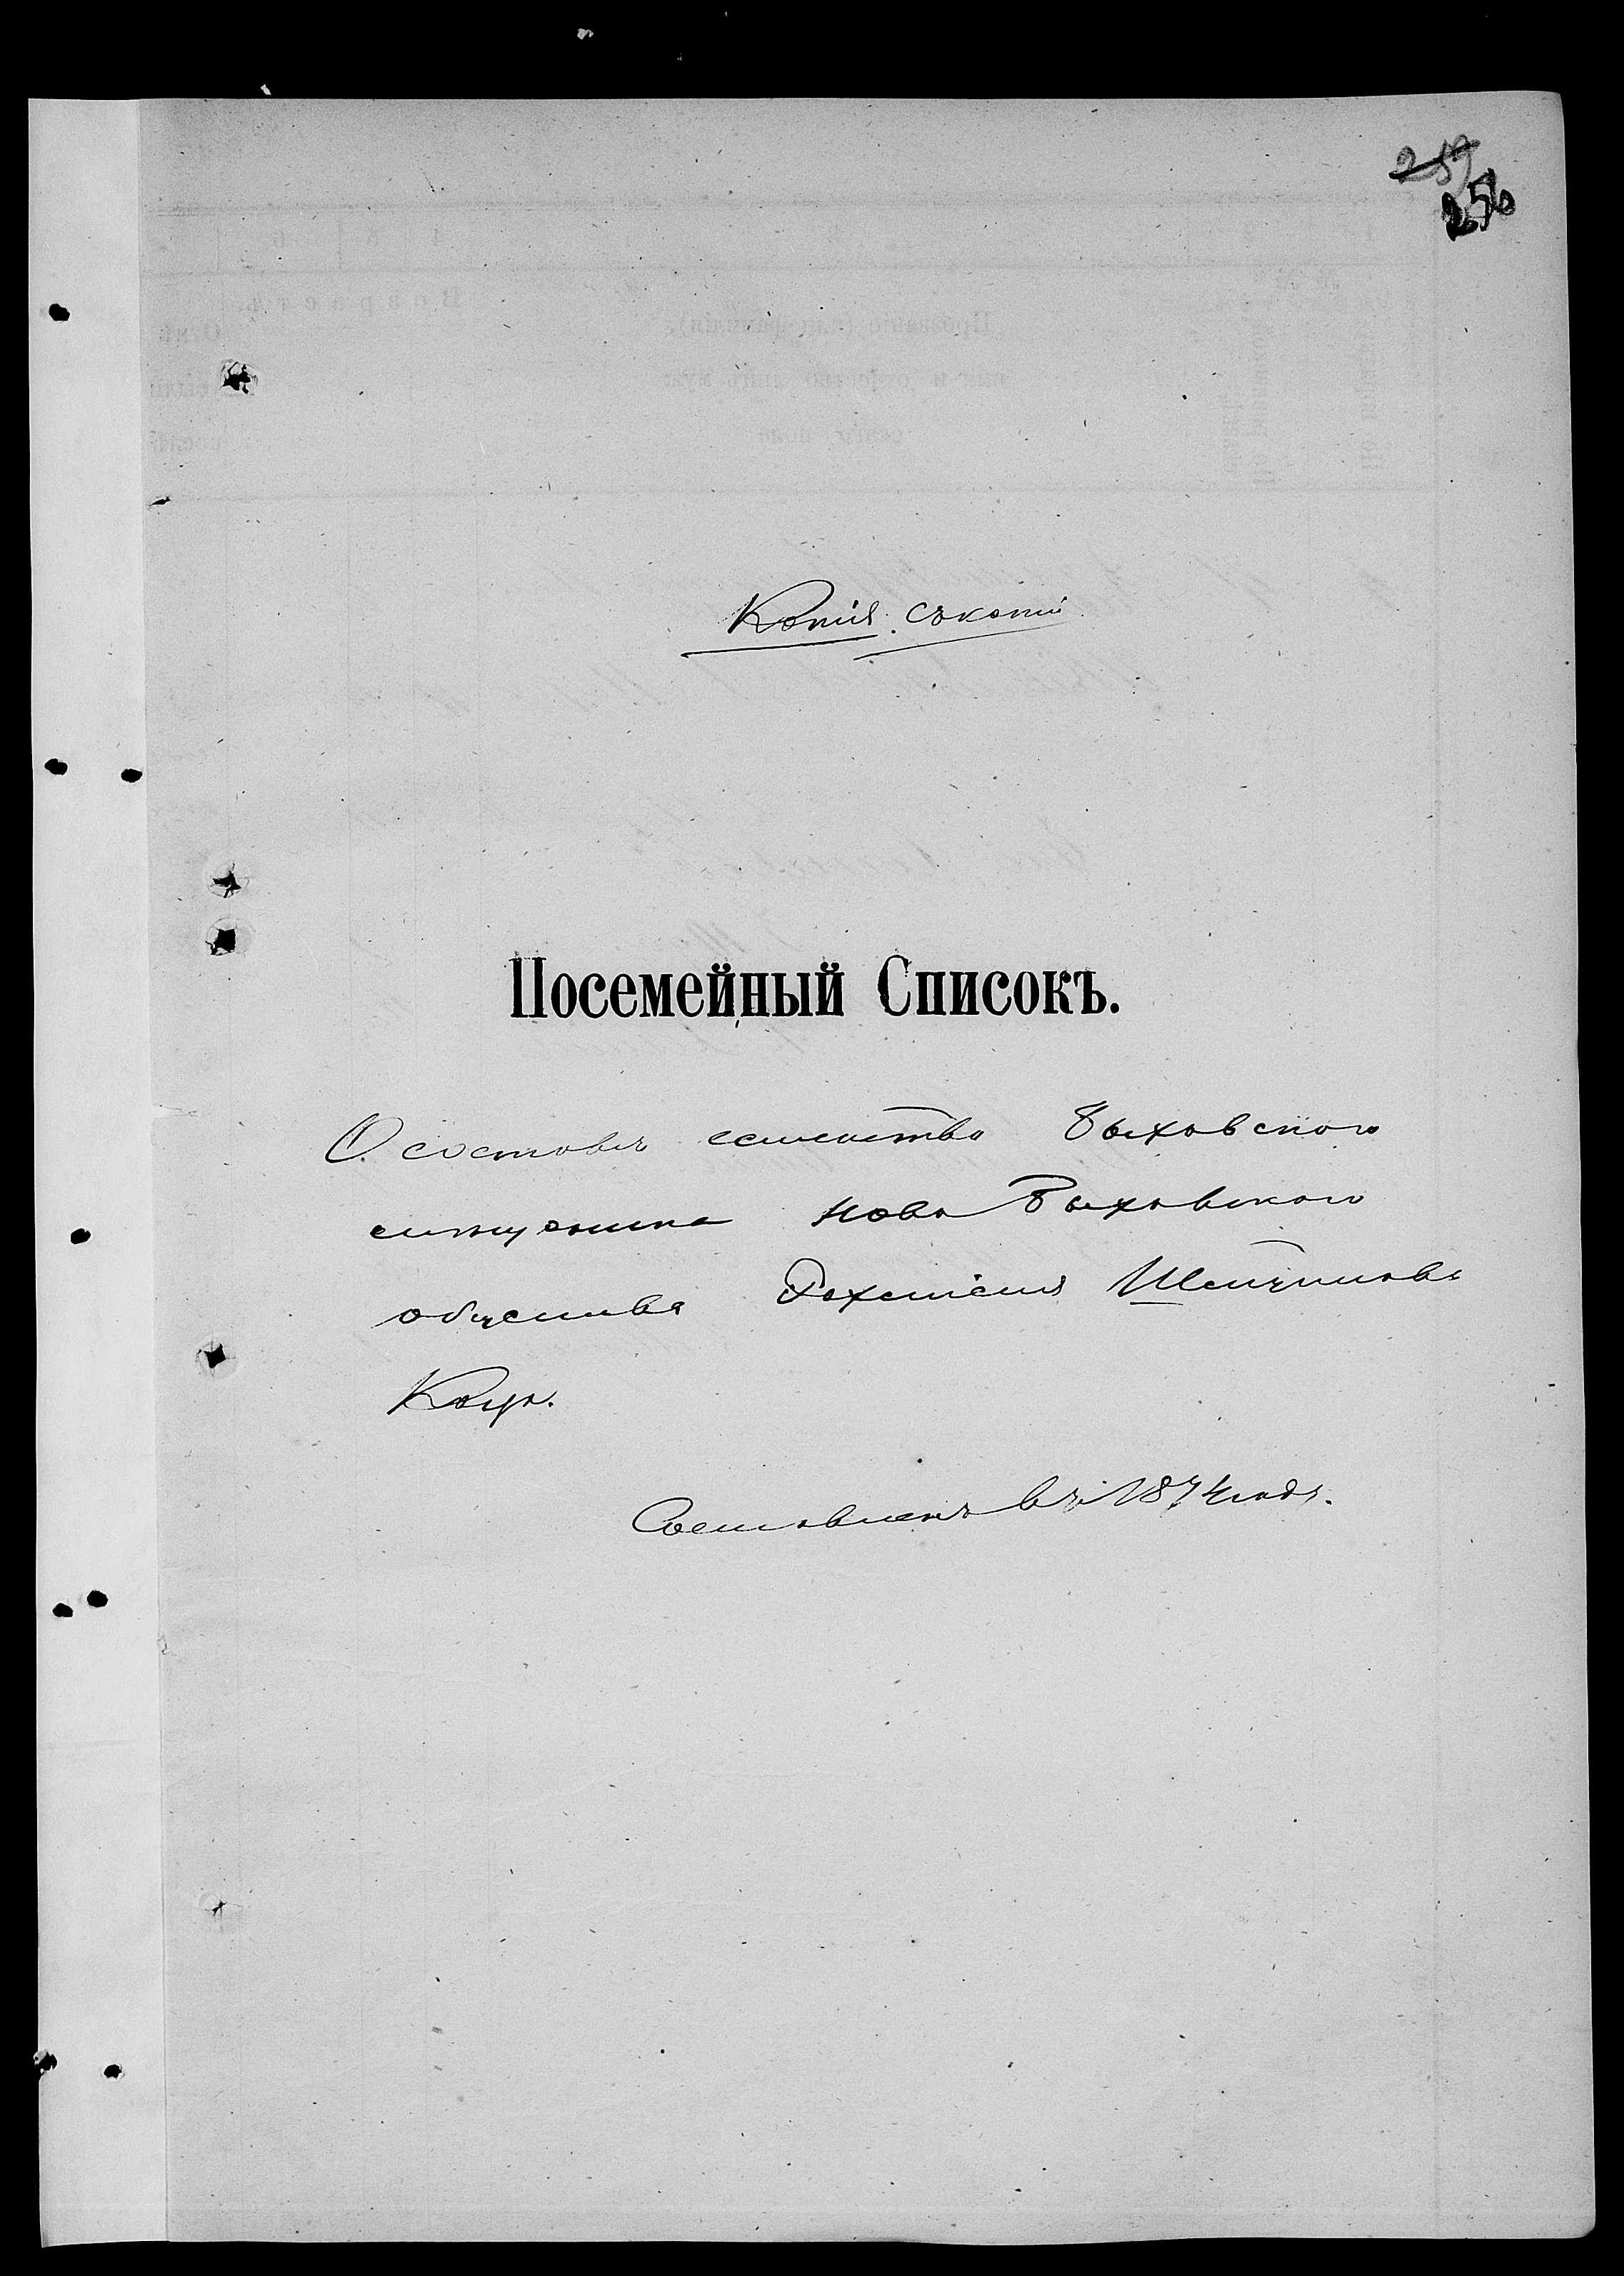 259
256
Копія съ копіи
Посемейный Списокъ.
О составѣ семейства Быховскаго
мѣщанина Ново Быховскаго
общества
Кацъ.
Составленъ въ 1874 году.